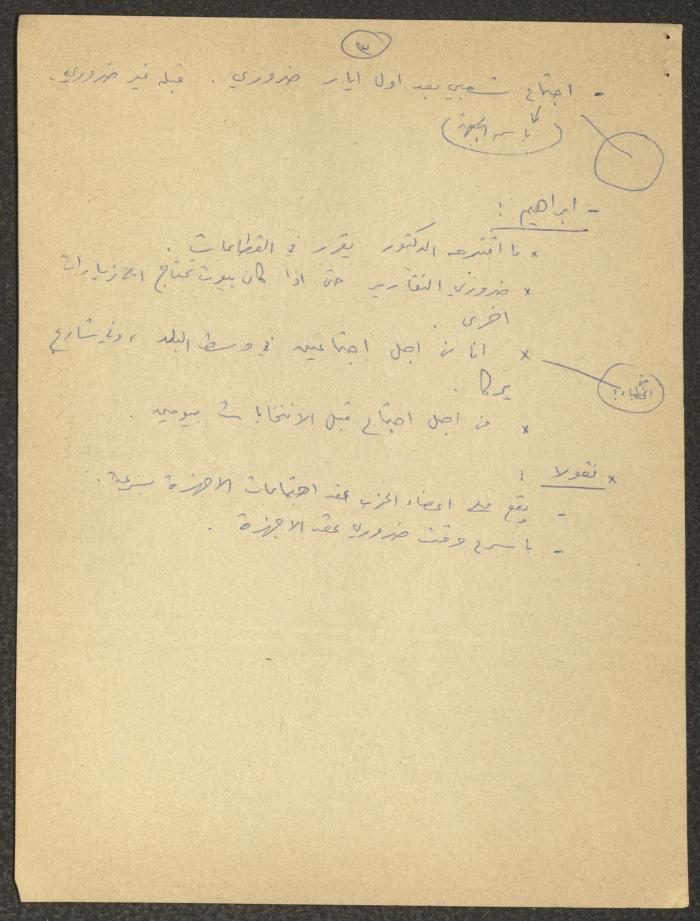 ٣
- اجتماع شعبي بعد اول ايار ضروري . قبله غير ضروري .
( باسم الجبهة )
- ابراهيم :
× ما اقترحه الدكتور يقرر في القطاعات .
× ضروري التقارير حتى اذا كان بيوت تحتاج الى زيارات
اخرى .
× انا من اجل اجتماعين في وسط البلد ، وفي شارع
يركا .
الخطباء؟
× من اجل اجتماع قبل الانتخابات بيومين .
× نقولا :
- يقع على اعضاء الحزب عقد اجتماعات الاجهزة بسرعة .
- باسرع وقت ضروري عقد الاجهزة .